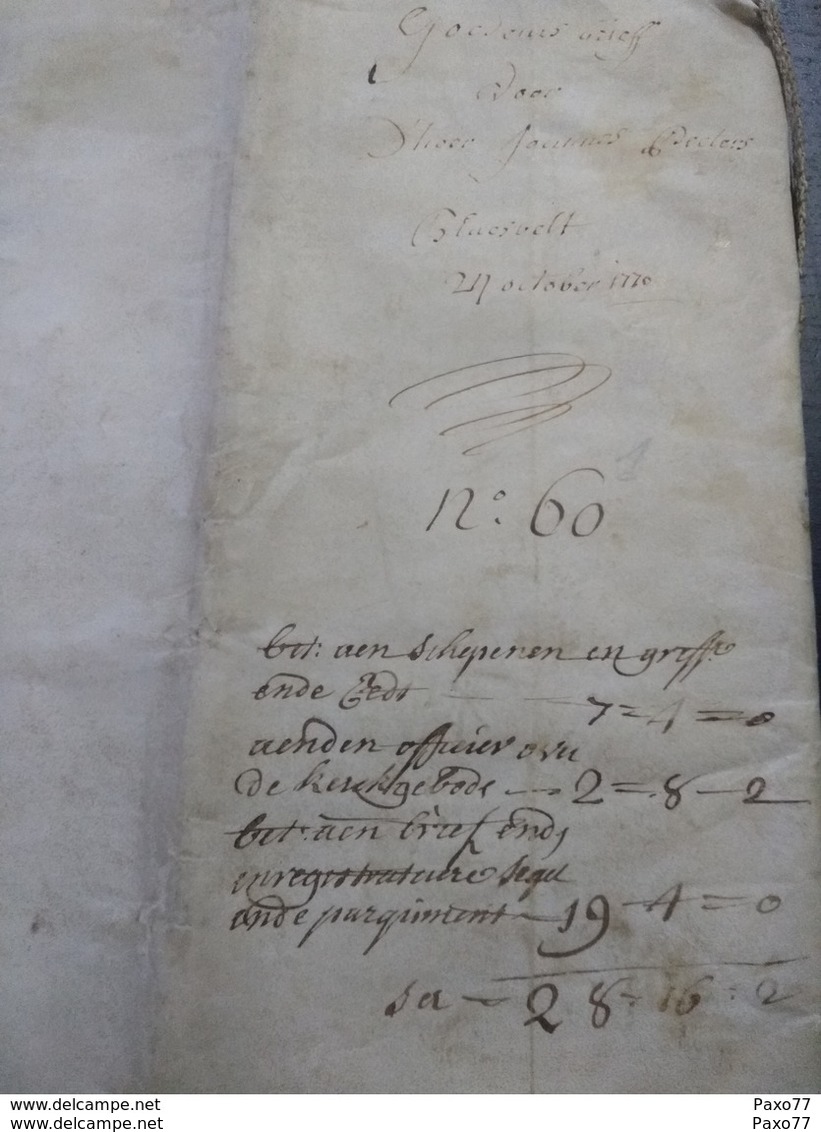 Goedens brieff
voor
D'heer Joannes Peeters
Blaesvelt
24 october 1770
1
N.o 60
bet: aen schepenen en greffr
ende Eedt 7=4=0
aenden officier over
de kerckgebode 2=8-2
bet: aen brief ende
enregistrature segel
ende parqiment 19-4=0
sa = 28=16=2
www.delcampe.net Paxo77
www.delcampe.net Paxo77